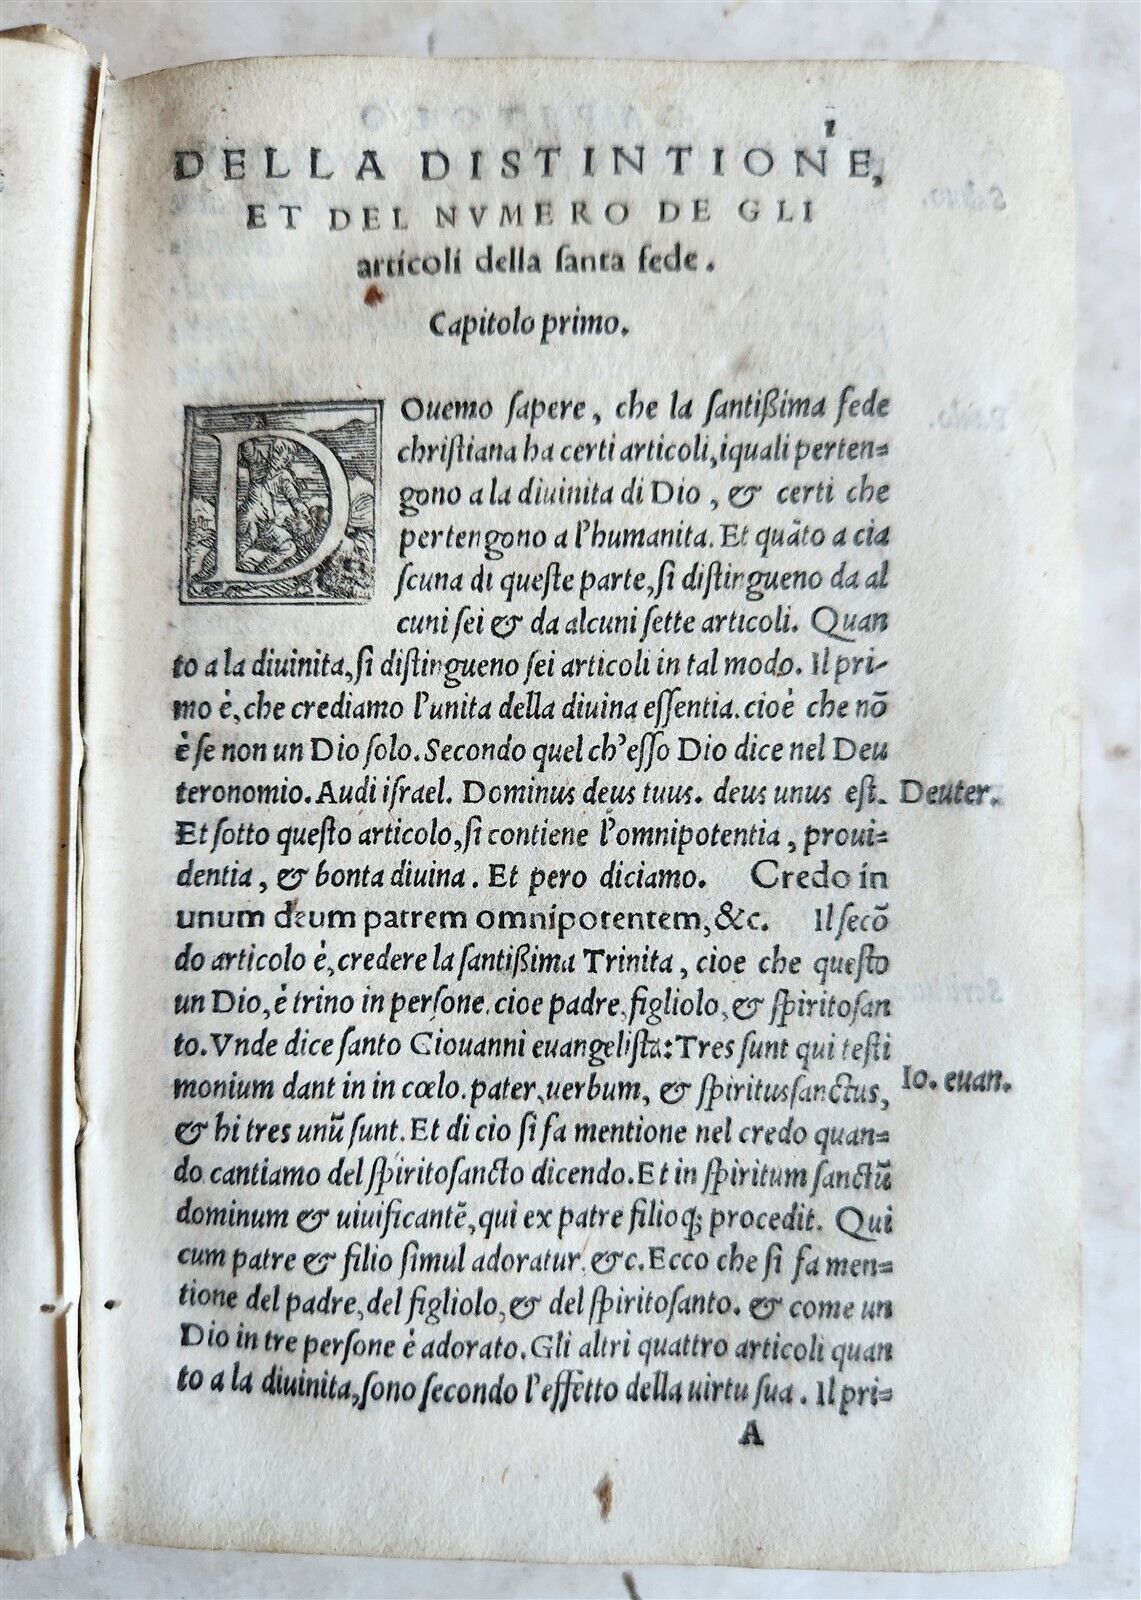 1
DELLA DISTINTIONE,
ET DEL NVMERO DE GLI
articoli della ſanta fede.
Capitolo primo.
DOuemo ſapere, che la ſantißima fede
chriſtiana ha certi articoli, iquali perten=
gono a la diuinita di Dio, & certi che
pertengono a l'humanita. Et quāto a cia
ſcuna di queſte parte, ſi diſtingueno da al
cuni ſei & da alcuni ſette articoli. Quan
to a la diuinita, ſi diſtingueno ſei articoli in tal modo. Il pri-
mo è, che crediamo l'unita della diuina eſſentia. cioè che nō
è ſe non un Dio ſolo. Secondo quel ch'eſſo Dio dice nel Deu
teronomio. Audi iſrael. Dominus deus tuus. deus unus eſt. Deuter.
Et ſotto queſto articolo, ſi contiene l'omnipotentia, proui=
dentia, & bonta diuina. Et pero diciamo. Credo in
unum deum patrem omnipotentem, &c. Il ſecō
do articolo è, credere la ſantißima Trinita, cioe che queſto
un Dio, è trino in perſone. cioe padre, figliolo, & ſpiritoſan
to. Vnde dice ſanto Giouanni euangeliſta: Tres ſunt qui teſti
monium dant in in cœlo. pater, uerbum, & ſpiritusſanctus, Io. euan.
& hi tres unū ſunt. Et di cio ſi fa mentione nel credo quan=
do cantiamo del ſpiritoſancto dicendo. Et in ſpiritum ſanctū
dominum & uiuificantē, qui ex patre filioq; procedit. Qui
cum patre & filio ſimul adoratur. &c. Ecco che ſi fa men=
tione del padre, del figliolo, & del ſpiritoſanto. & come un
Dio in tre perſone è adorato. Gli altri quattro articoli quan
to a la diuinita, ſono ſecondo l'effetto della uirtu ſua. Il pri=
A